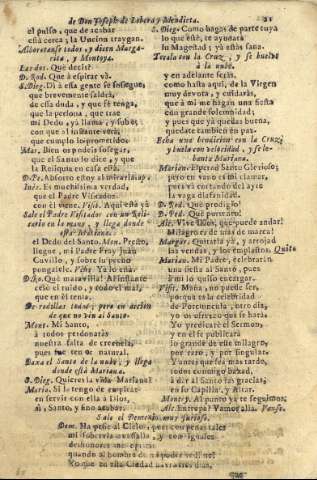 de Don Joseph de Lobera y Mendieta. 21
el pulso, que de acabar
està cerca; la Uncion traygan.
Alborotanse todos, y dicen Margarita,
y Montoya.
Los dos. Què decis?
D. Rod. Què à espirar và.
S. Dieg. Di à essa gente se sossiegue,
que brevemente saldrà,
de essa duda, y que fè tenga,
que la persona, que trae
mi Dedo, ya llama, y sobre,
con que al instante verà,
que cumplo lo prometido.
Mar. Bien os podeis sossegar,
que el Santo lo dice, y que
la Reliquia en casa està.
D. Pe. Absorto estoy al mirar
Inès. Es muchissima verdad,
que el Padre Visitador
con el viene. Visit. Aqui està yà
Sale el Padre Visitador con un Relicario
en la mano, y llega donde
està
el Dedo del Santo. Mon. Presto,
llegue, mi Padre Fray Juan
Cuvillo, y sobre su pecho
pongasele. Visit. Ya lo està.
D. Ro. Què maravilla! Al instante
cesò el ruido, y todo el mal,
que en èl tenia.
De rodillas todos; pero en accion
de que no vèn al Santo.
Mont. Mi Santo,
à todos perdonaràs
nuestra falta de creencia,
pues fue tan natural.
Baxa el Santo de la nube, y llega
donde està Mariana.
S. Dieg. Quieres la vida Mariana?
Maria. Si la tengo de emplear
en servir con ella à Dios,
sì, Santo, y sino acabar.
S. Diego. Como hagas de parte tuya
lo que està, te ayudarà
su Magestad; yà estàs sana.
Tocala con la Cruz, y se buelve
à la nube.
y en adelante seràs,
como hasta aqui, de la Virgen
muy devota, y cuidaràs,
que à mi me hagan una fiesta
con grande solemnidad,
y pues que yà quedas buena,
quedate tambien en paz.
Echa una bendicion con la Cruz,
y buela con velocidad, y se levanta
Mariana.
Marian. Espera, Santo Glorioso;
pero en vano es mi clamar,
pues và cortando del ayre
la vaga diafanidad.
D. Rod. Què prodigio!
D. Ped. Què portento!
Als. Vive Dios, que puede andar
Milagrero de unas de marca!
Margar. Quitarla yà, y arrojad
las vendas, y los emplastos. Quita
Marian. Mi Padre, celebraràn
una fiesta al Santo, pues
à mi lo quiso encargar.
Visit. Mona, no puede ser,
porque es la celebridad
de Porciuncula, otro dia,
yo os ofrezco que se harà.
Yo predicarè el Sermon,
y en èl se publicarà
lo grande de este milagro,
por raro, y por singular.
Y ahora que sea mas tarde,
todos conmigo baxad,
à dàr al Santo las gracias,
en su Capilla, y Altar.
Montoy. Al punto yà te seguimos,
Als. Entrepa? Vamos allà. Vanse.
Sale el Demonio muy furioso.
Dem. Ha pese al Cielo, que con penas tales
mi sobervia avassalla, y con iguales
deshonores me oprime,
quando al hombre
Yo que en esta Ciudad